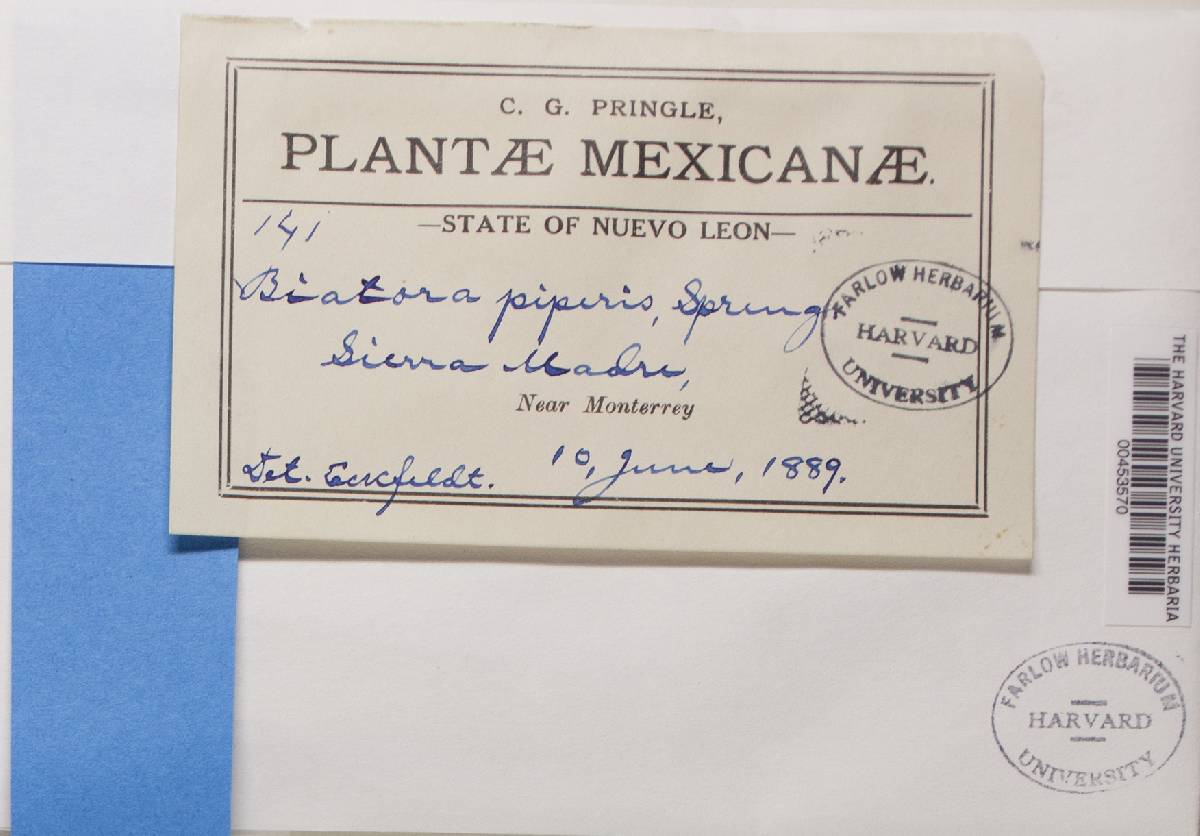 C. G. PRINGLE,
PLANTÆ MEXICANÆ.
141
—STATE OF NUEVO LEON—
Biatora piperis, Spreng
Sierra Madre,
Near Monterrey
Det. Eckfeldt.
10, June, 1889.
FARLOW HERBARIUM
HARVARD
UNIVERSITY
THE HARVARD UNIVERSITY HERBARIA
00453570
FARLOW HERBARIUM
HARVARD
UNIVERSITY